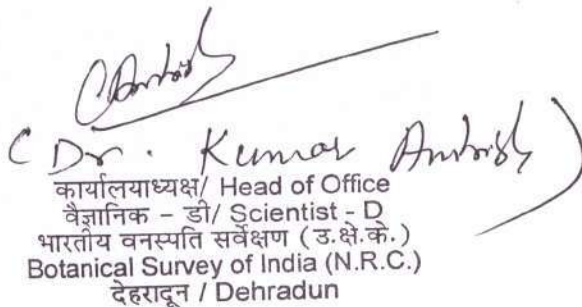 (Dr. Kumar Ambrish)
कार्यालयाध्यक्ष/ Head of Office
वैज्ञानिक - डी/ Scientist - D
भारतीय वनस्पति सर्वेक्षण (उ.क्षे.के.)
Botanical Survey of India (N.R.C.)
देहरादून / Dehradun